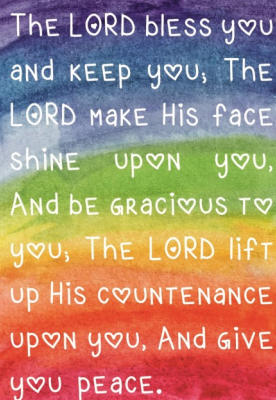 The LORD bless you
and keep you; The
LORD make His face
shine upon you,
And be gracious to
you; The LORD lift
up His countenance
upon you, And give
you peace.